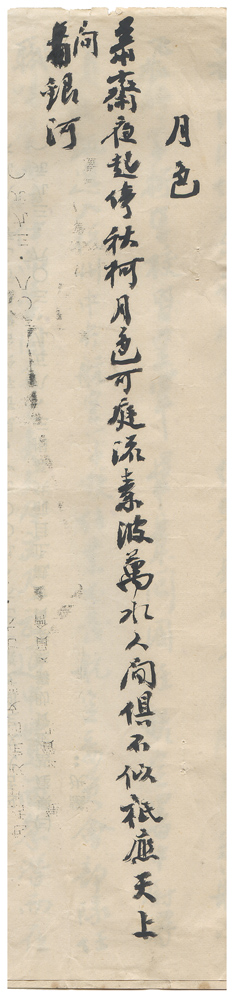 月色
茅齋夜起倚秋柯月色可庭流素波萬水人間俱不似祇應天上
問銀河